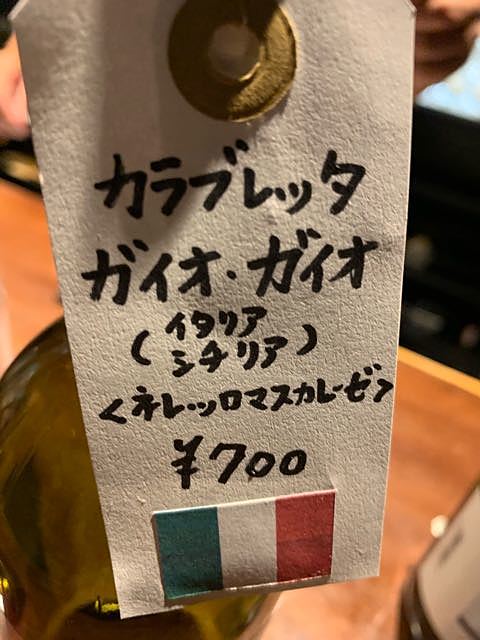 カラブレッタ
ガイオ・ガイオ
(イタリア
シチリア)
<ネレッロマスカレーゼ>
¥700